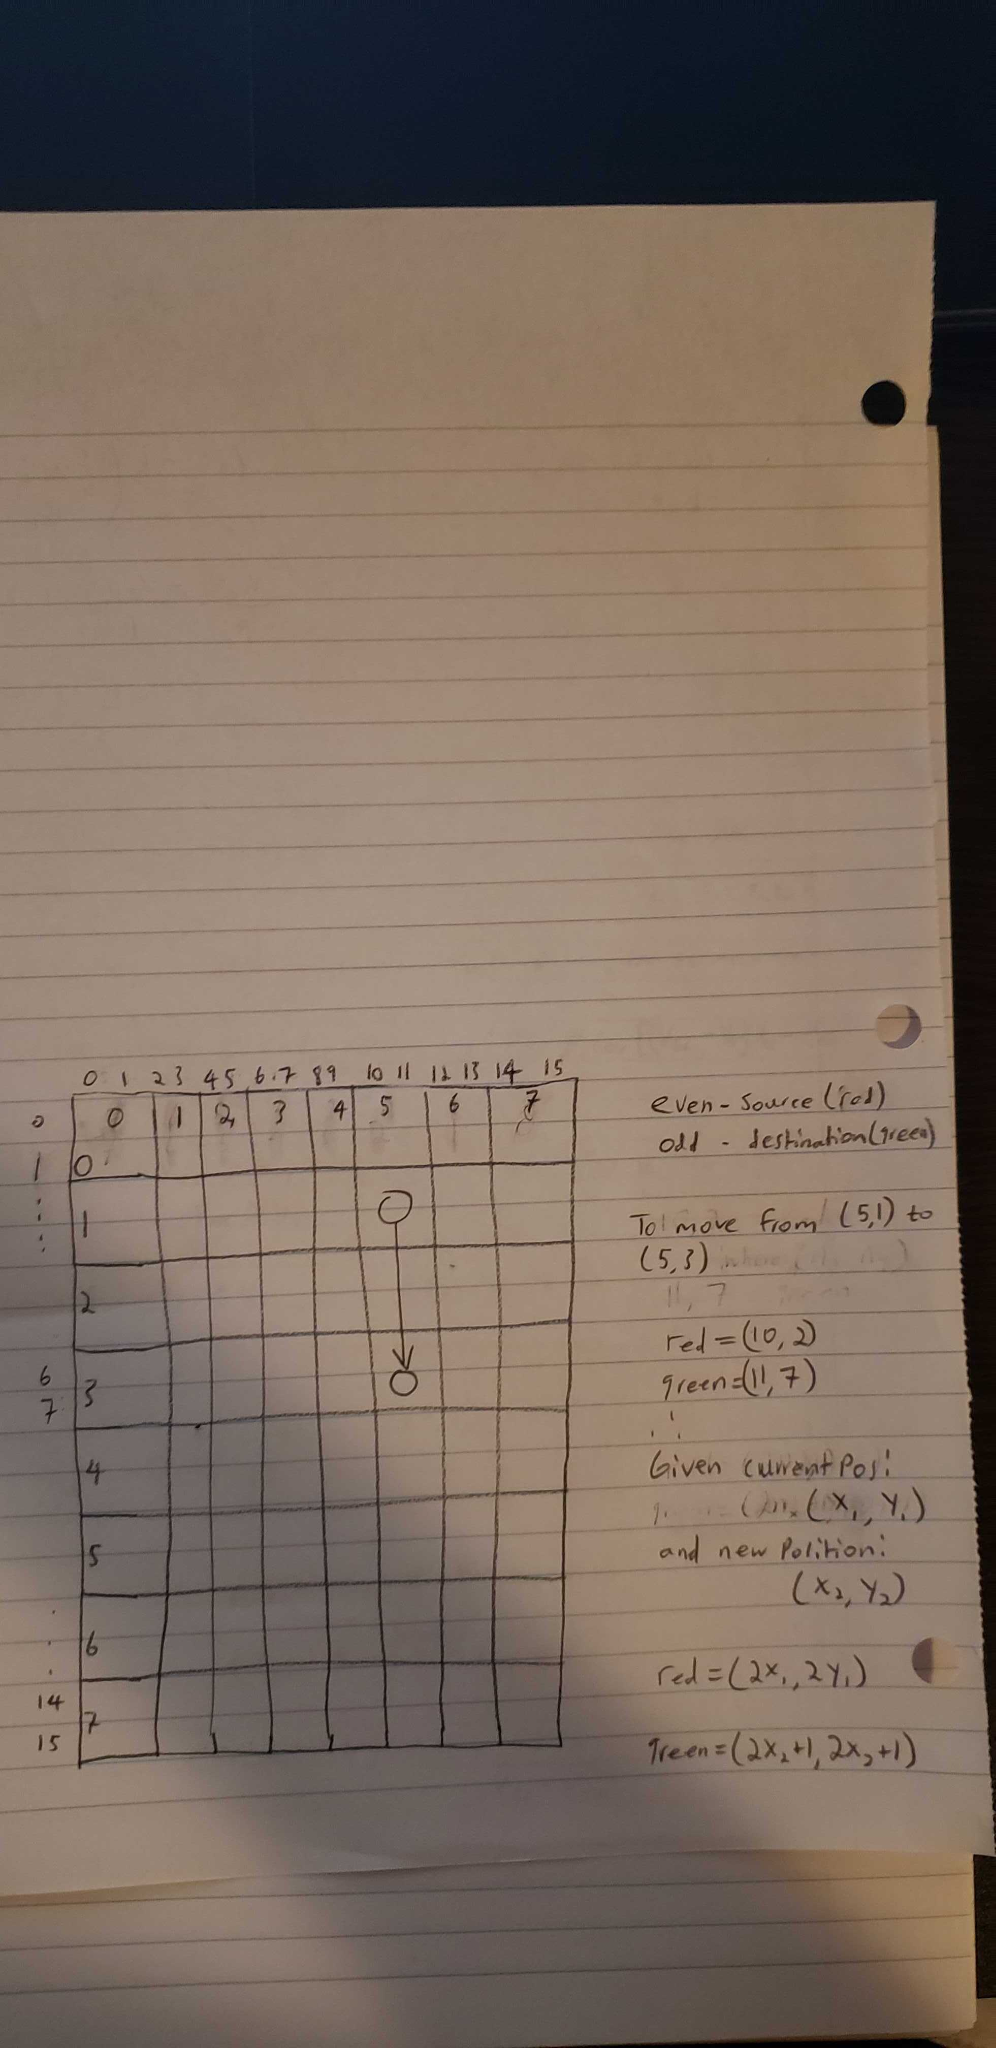 0 1 2 3 4 5 6.7 8 9 10 11 12 13 14 15
0 0 1 2 3 4 5 6 7
1 0
1
2
6
7 3
4
5
6
14
15 7
even - source (red)
odd - destination (green)
To move from (5,1) to
(5,3)
11, 7
red = (10, 2)
green = (11, 7)
Given current Pos:
(X₁, Y₁)
and new Polition:
(X₂, Y₂)
red = (2X₁, 2Y₁)
green = (2X₂+1, 2X₂+1)